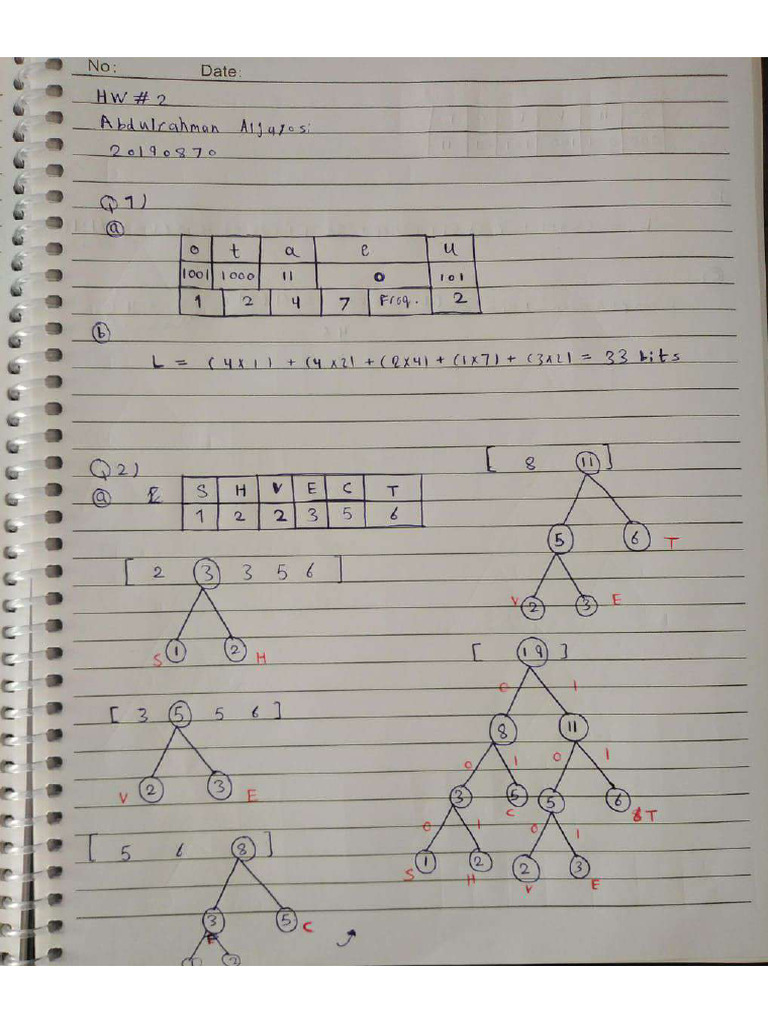 No:
Date:
HW # 2
Abdulrahman Aljazosi
20190870
Q1)
a
o t a e u
1001 1000 11 0 101
1 2 4 7 Freq. 2
b
L = (4x1) + (4x2) + (2x4) + (1x7) + (3x2) = 33 bits
Q2)
a
S H V E C T
1 2 2 3 5 6
[ 2 3 3 5 6 ]
S 1 2 H
[ 3 5 5 6 ]
V 2 3 E
[ 5 6 8 ]
3 5 C
1 2
[ 8 11 ]
5 6 T
V 2 3 E
[ 19 ]
0 1
8 11
0 1 0 1
3 5 5 6
C T
0 1 0 1
1 2 2 3
S H V E